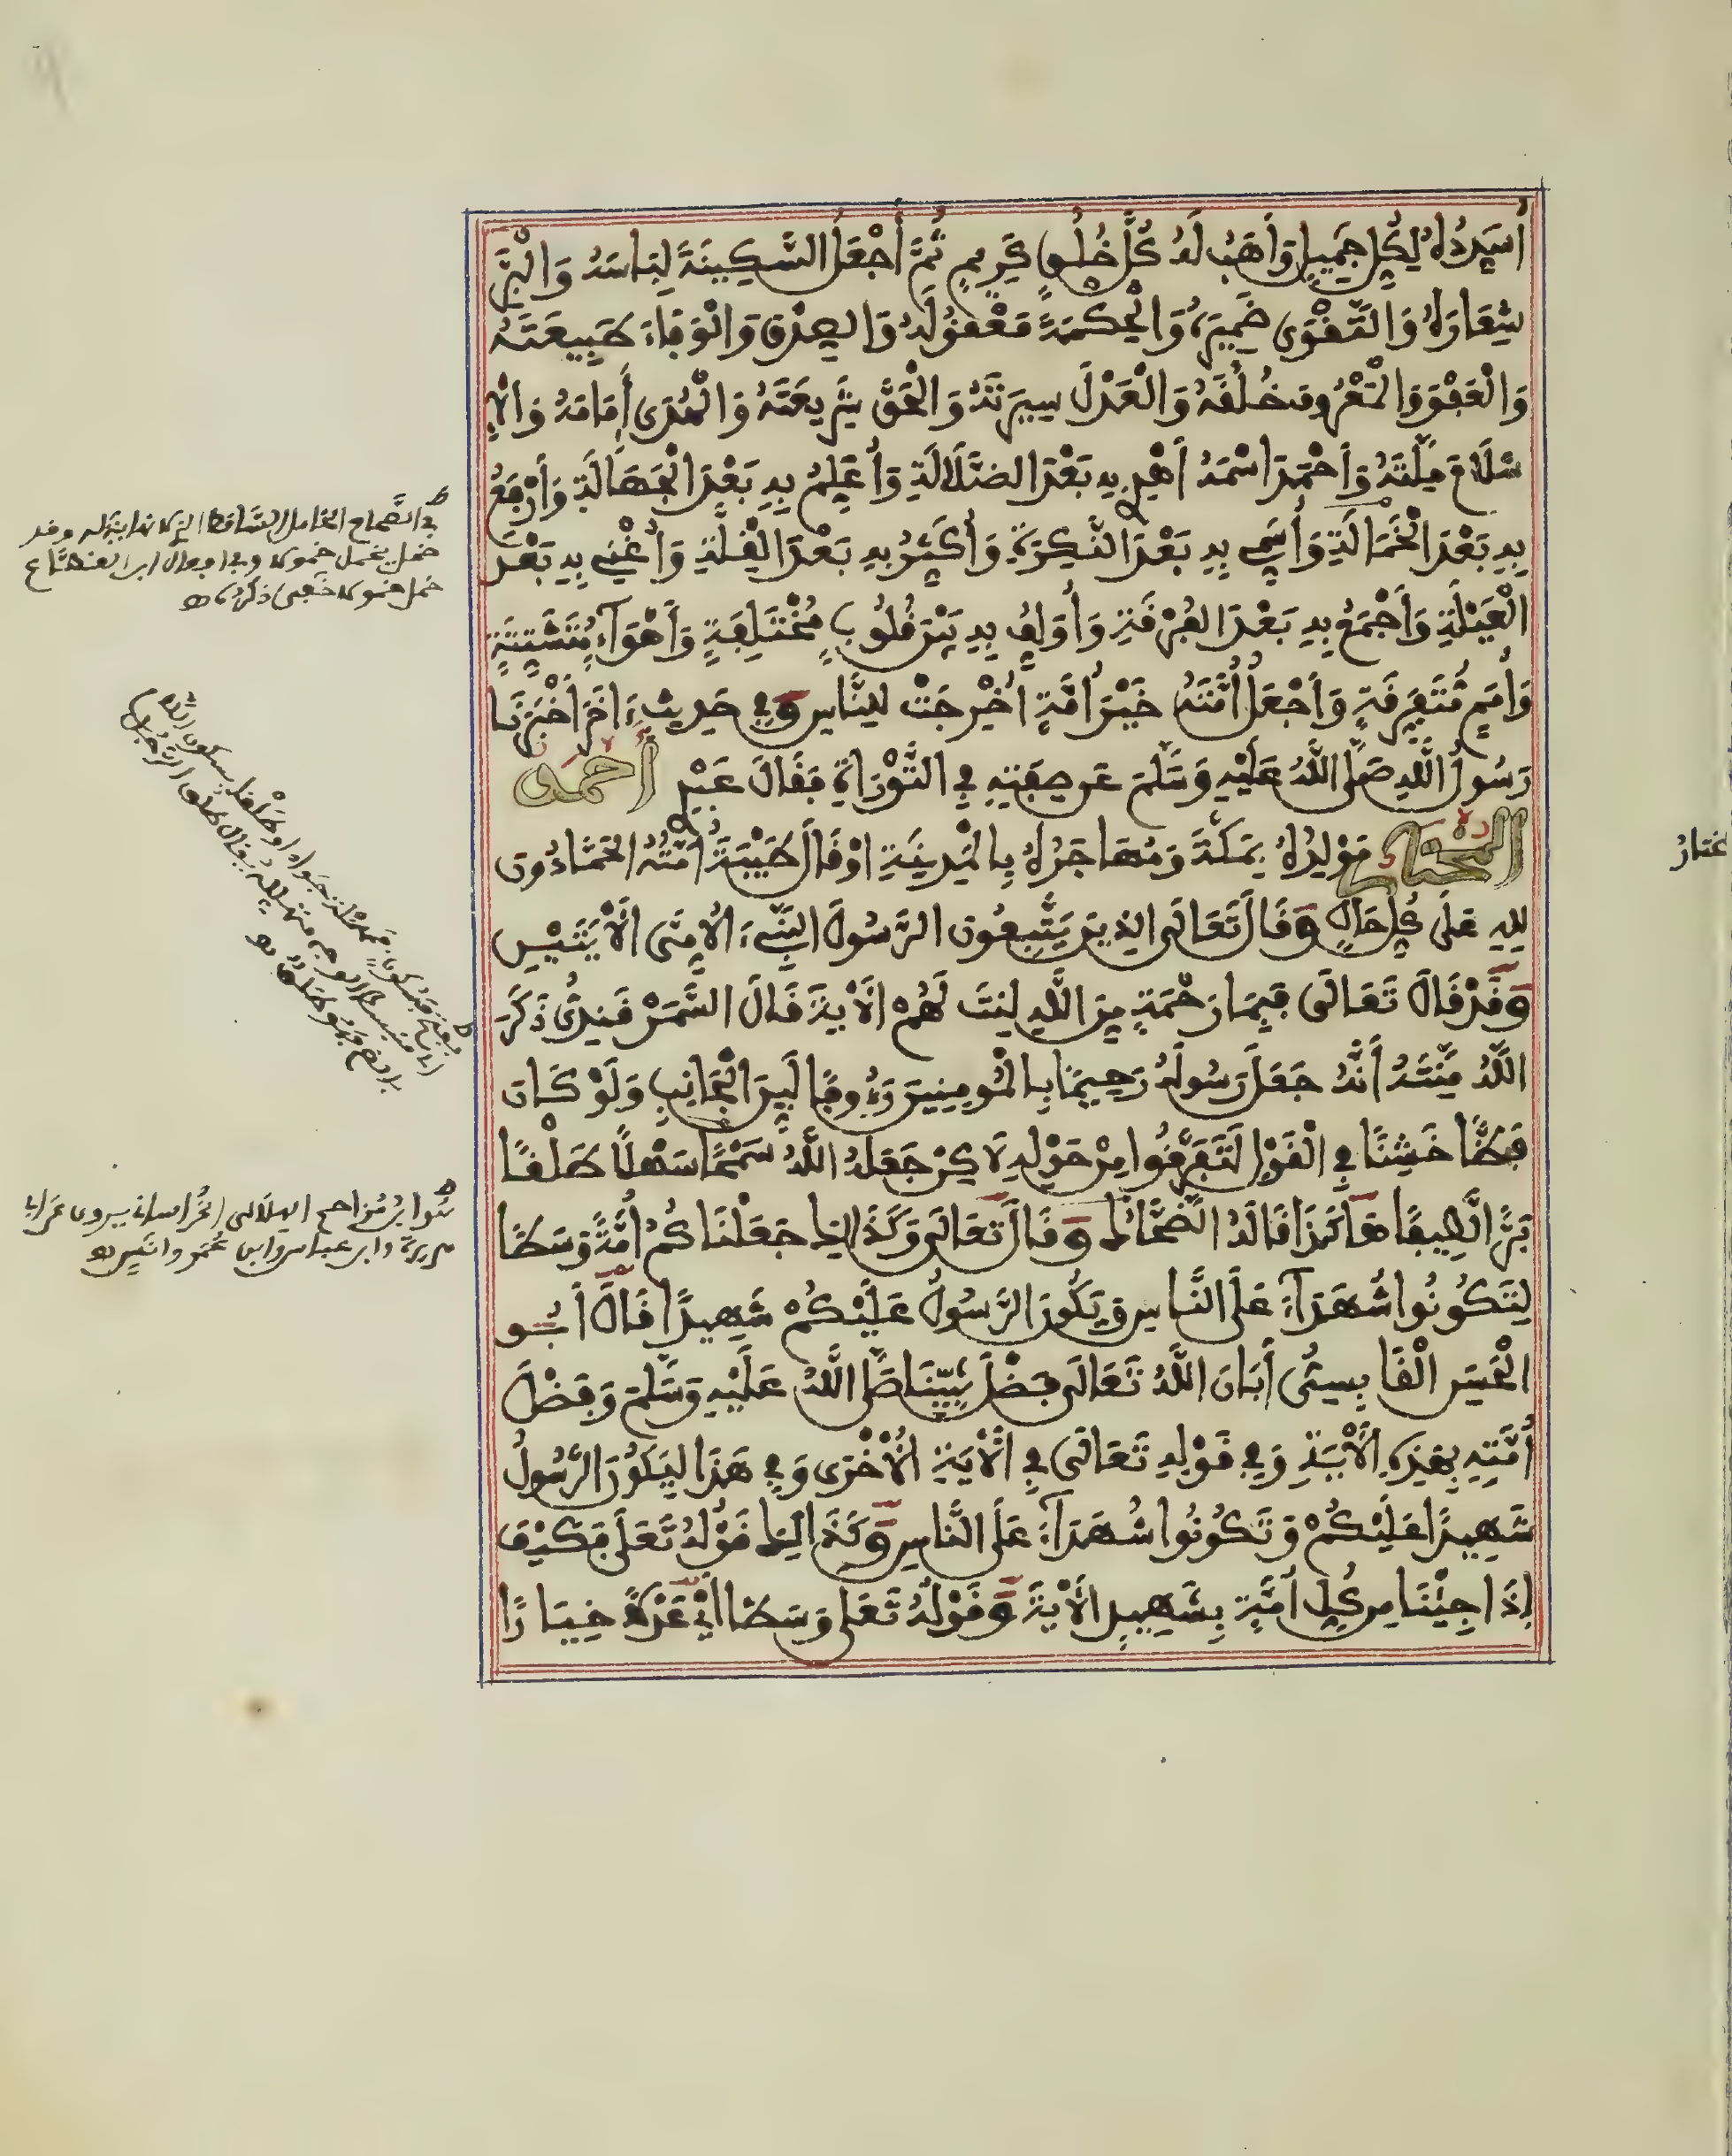 أُسَدِّدُهُ لِكُلِّ جَمِيلٍ وَأَهَبُ لَهُ كُلَّ خُلُقٍ كَرِيمٍ ثُمَّ أَجْعَلُ السَّكِينَةَ لِبَاسَهُ وَالْبِرَّ
شِعَارَهُ وَالتَّقْوَى ضَمِيرَهُ وَالْحِكْمَةَ مَعْقُولَهُ وَالصِّدْقَ وَالْوَفَاءَ طَبِيعَتَهُ
وَالْعَفْوَ وَالْمَعْرُوفَ خُلُقَهُ وَالْعَدْلَ سِيرَتَهُ وَالْحَقَّ شَرِيعَتَهُ وَالْهُدَى إِمَامَهُ وَالْإِ
سْلَامَ مِلَّتَهُ وَأَحْمَدَ اسْمَهُ أَهْدِي بِهِ بَعْدَ الضَّلَالَةِ وَأُعَلِّمُ بِهِ بَعْدَ الْجَهَالَةِ وَأَرْفَعُ
بِهِ بَعْدَ الْخَمَالَةِ وَأُسَمِّي بِهِ بَعْدَ النَّكِرَةِ وَأُكَثِّرُ بِهِ بَعْدَ الْقِلَّةِ وَأُغْنِي بِهِ بَعْدَ
الْعَيْلَةِ وَأَجْمَعُ بِهِ بَعْدَ الْفُرْقَةِ وَأُؤَلِّفُ بِهِ بَيْنَ قُلُوبٍ مُخْتَلِفَةٍ وَأَهْوَاءٍ مُتَشَتِّتَةٍ
وَأُمَمٍ مُتَفَرِّقَةٍ وَأَجْعَلُ أُمَّتَهُ خَيْرَ أُمَّةٍ أُخْرِجَتْ لِلنَّاسِ وَفِي حَدِيثٍ ءَاخَرَ أَخْبَرَنَا
رَسُولُ اللَّهِ صَلَّى اللَّهُ عَلَيْهِ وَسَلَّمَ عَن صِفَتِهِ فِي التَّوْرَاةِ فَقَالَ عَبْدِي أَحْمَدُ
الْمُخْتَارُ مَوْلِدُهُ بِمَكَّةَ وَمُهَاجَرُهُ بِالْمَدِينَةِ اوْ قَالَ طَيْبَةَ أُمَّتُهُ الْحَمَّادُونَ
لِلهِ عَلَى كُلِّ حَالٍ وَقَالَ تَعَالَى الذِينَ يَتَّبِعُونَ الرَّسُولَ النَّبِيءَ الْأُمِّيَّ الْآيَتَيْنِ
وَقَدْ قَالَ تَعَالَى فَبِمَا رَحْمَةٍ مِنَ اللَّهِ لِنتَ لَهُمْ الْآيَةَ قَالَ السَّمَرْقَنْدِيُّ ذَكَّرَ
اللَّهُ مِنَّتَهُ أَنَّهُ جَعَلَ رَسُولَهُ رَحِيمًا بِالْمُومِنِينَ رَءُوفًا لَيِّنَ الْجَانِبِ وَلَوْ كَانَ
فَظًّا خَشِنًا فِي الْقَوْلِ لَتَفَرَّقُوا مِنْ حَوْلِهِ لَاكِنْ جَعَلَهُ اللَّهُ سَمْحًا سَهْلًا طَلْقًا
بَرًّا لَّطِيفًا هَاكَذَا قَالَهُ الضَّحَّاكُ وَقَالَ تَعَالَى وَكَذَالِكَ جَعَلْنَاكُمْ أُمَّةً وَسَطًا
لِتَكُونُوا شُهَدَاءَ عَلَى النَّاسِ وَيَكُونَ الرَّسُولُ عَلَيْكُمْ شَهِيدًا قَالَ أَبُو
الْحَسَنِ الْقَابِسِيُّ أَبَانَ اللَّهُ تَعَالَى فَضْلَ نَبِيِّنَا صَلَّى اللَّهُ عَلَيْهِ وَسَلَّمَ وَفَضْلَ
أُمَّتِهِ بِهَذِهِ الْآيَةِ وَفِي قَوْلِهِ تَعَالَى فِي الْآيَةِ الْأُخْرَى وَفِي هَذَا لِيَكُونَ الرَّسُولُ
شَهِيدًا عَلَيْكُمْ وَتَكُونُوا شُهَدَاءَ عَلَى النَّاسِ وَكَذَالِكَ قَوْلُهُ تَعَلَى فَكَيْفَ
إِذَا جِئْنَا مِن كُلِّ أُمَّةٍ بِشَهِيدٍ الْآيَةَ وَقَوْلُهُ تَعَلَى وَسَطًا أَيْ عَدْلًا خِيَارًا
ط في الصحاح الخامل الساقط الذي لا نباهة له وقد
خمل يخمل خمولا وفي افعال ابن القطاع
ضحاك بن مزاحم الهلالي الخراساني يروى عن ابي
هريرة وابن عباس وابن عمر وانس